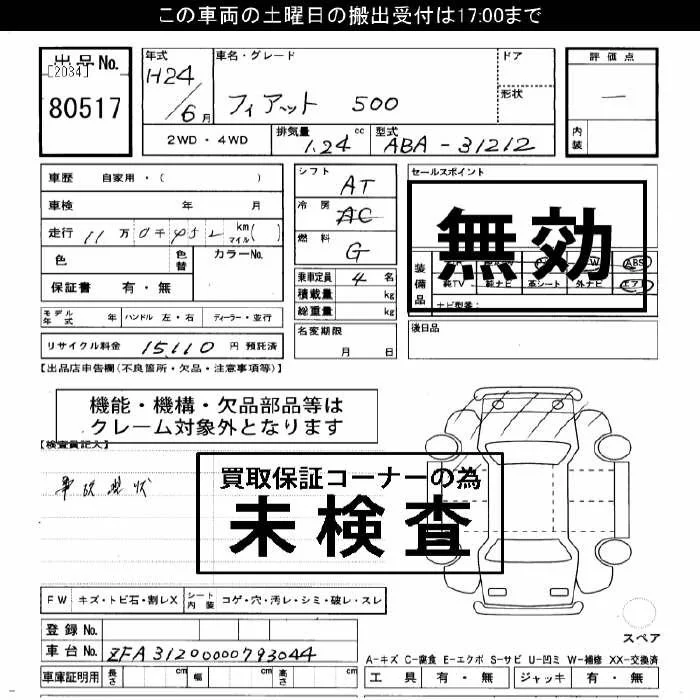 この車両の土曜日の搬出受付は17:00まで
出品No.
[2034]
80517
年式
H24
/6月
車名・グレード
フィアット 500
ドア
形状
評価点
―
内装
2WD・4WD
排気量
1.24cc
型式
ABA-31212
車歴 自家用・( )
車検 年 月
走行 11万0千452 km マイル( )
色
色替
カラーNo.
保証書 有・無
モデル年式 年 ハンドル 左・右 ディーラー・並行
リサイクル料金 15,110 円 預託済
シフト AT
冷房 AC
燃料 G
乗車定員 4 名
積載量 kg
総重量 kg
名変期限
月 日
セールスポイント
無効
装備品
ABS
純TV 純ナビ 革シート 外ナビ エアB
ナビ型番:
後日品
【出品店申告欄(不良箇所・欠品・注意事項等)】
機能・機構・欠品部品等は
クレーム対象外となります
【検査員記入】
買取保証コーナーの為
未検査
FW キズ・トビ石・割レX
シート内装 コゲ・穴・汚レ・シミ・破レ・スレ
登録No.
車台No. ZFA31200000793044
車庫証明用 長さ cm 幅 cm 高さ cm
スペア
A-キズ C-腐食 E-エクボ S-サビ U-凹ミ W-補修 XX-交換済
工具 有・無 ジャッキ 有・無